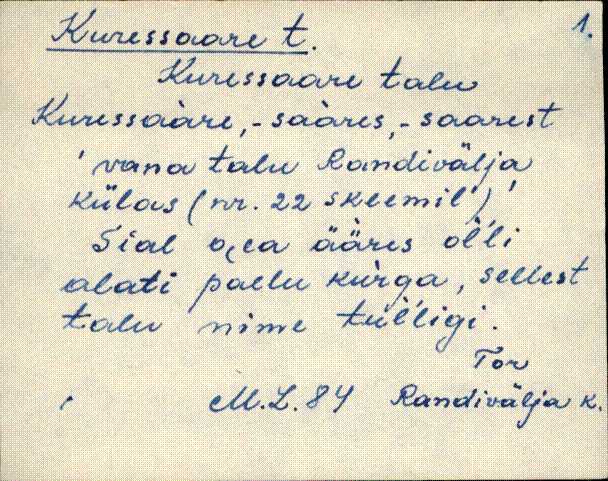 Kuressaare t. 1.
Kuressaare talu
Kuressààre, -sààres, -saarest
'vana talu Randivälja
külas (nr. 22 skeemil)'
Sial oja ääres ol̀li
alati pal̀lu kùrga, sellest
talu nime tul̀ligi.
Tor
M.L. 84 Randivälja k.